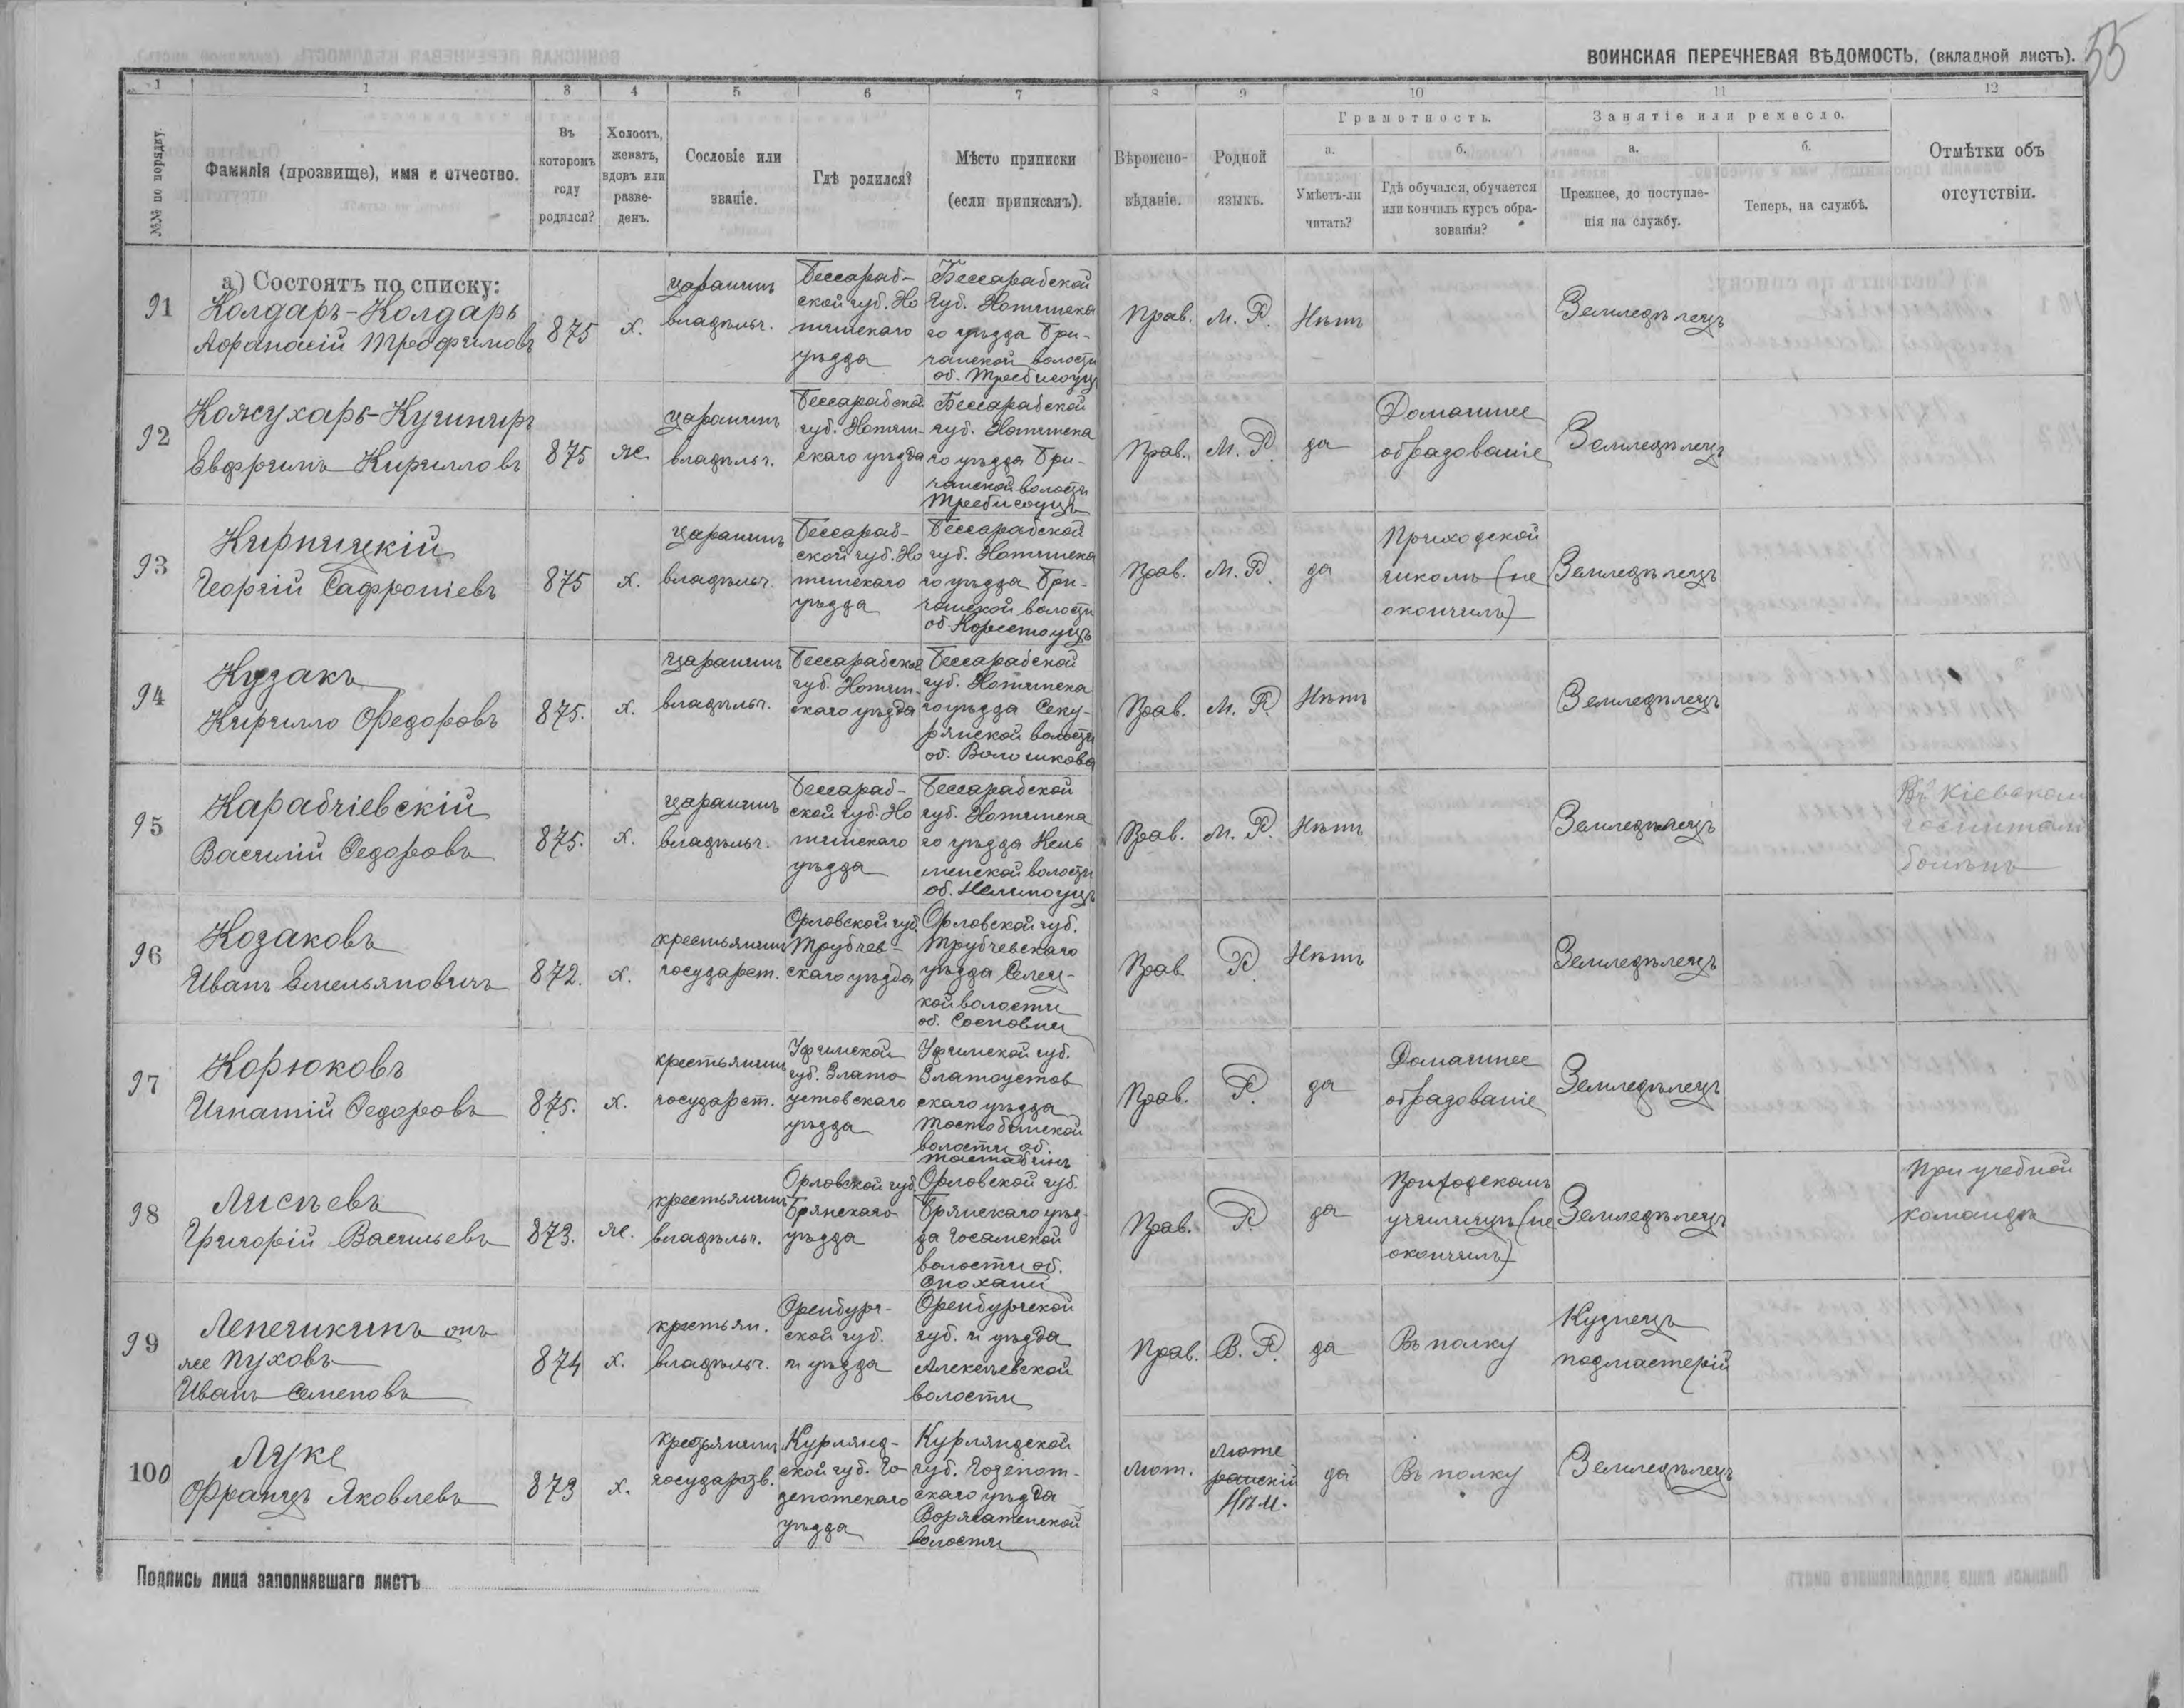 ВОИНСКАЯ ПЕРЕЧНЕВАЯ ВѢДОМОСТЬ. (вкладной листъ).
55
1 1 3 4 5 6 7 8 9 10 11 12
№№ по порядку.
Фамилія (прозвище), имя и отчество.
Въ которомъ году родился?
Холостъ, женатъ, вдовъ или разведенъ.
Сословіе или званіе.
Гдѣ родился?
Мѣсто приписки (если приписанъ).
Вѣроиспо-
вѣданіе.
Родной языкъ.
Грамотность.
а. Умѣетъ-ли читать?
б. Гдѣ обучался, обучается или кончилъ курсъ обра-
зованія?
Занятіе или ремесло.
а. Прежнее, до поступле-
нія на службу.
б. Теперь, на службѣ.
Отмѣтки объ отсутствіи.
а) Состоятъ по списку:
91 Колдаръ-Колдарь
Афанасій Трофимовъ
875 х.
царанинъ
владѣльч.
Бессараб-
ской губ. Хо
тинскаго
уѣзда
Бессарабской
губ. Хотинска
го уѣзда Бри-
чанской волости
об. Требисоуцъ
Прав. М. Р. Нѣтъ
Земледѣлецъ
92 Кожухарь-Кушниръ
Евфимъ Кирилловъ
875 ж.
царанинъ
владѣльч.
Бессарабской
губ. Хотин-
скаго уѣзда
Бессарабской
губ. Хотинска
го уѣзда Бри-
чанской волости
Требисоуцъ
Прав. М. Р. да
Домашнее
образованіе
Земледѣлецъ
93 Кирницкій
Георгій Сафроніевъ
875 х.
царанинъ
владѣльч.
Бессараб-
ской губ. Хо
тинскаго
уѣзда
Бессарабской
губ. Хотинска
го уѣзда Бри-
чанской волости
об. Корестоуцъ
Прав. М. Р. да
Приходской
школѣ (не
окончилъ)
Земледѣлецъ
94 Кузакъ
Кирилло Федоровъ
875. х.
царанинъ
владѣльч.
Бессарабской
губ. Хотин-
скаго уѣзда
Бессарабской
губ. Хотинска
го уѣзда Секу-
рянской волости
об. Волошкова
Прав. М. Р. Нѣтъ
Земледѣлецъ
95 Карабчіевскій
Василій Федоровъ
875. х.
царанинъ
владѣльч.
Бессараб-
ской губ. Хо
тинскаго
уѣзда
Бессарабской
губ. Хотинска
го уѣзда Кель
менской волости
об.
Прав. М. Р. Нѣтъ
Земледѣлецъ
Въ Кіевском
госпитали
боленъ
96 Козаковъ
Иванъ Емельяновичъ
872. х.
крестьянинъ
государст.
Орловской губ.
Трубчев-
скаго уѣзда
Орловской губ.
Трубчевскаго
уѣзда Селец-
кой волости
об. Сосновки
Прав. Р. Нѣтъ
Земледѣлецъ
97 Корюковъ
Игнатій Федоровъ
875. х.
крестьянинъ
государст.
Уфимской
губ. Злато
устовскаго
уѣзда
Уфимской губ.
Златоустов
скаго уѣзда
волости об.
Прав. Р. да
Домашнее
образованіе
Земледѣлецъ
98 Лисѣевъ
Григорій Васильевъ
873. ж.
крестьянинъ
владѣльч.
Орловской губ.
Брянскаго
уѣзда
Орловской губ.
Брянскаго уѣз-
да Госамской
волости об.
Прав. Р. да
Приходскомъ
училищѣ (не
окончилъ)
Земледѣлецъ
При учебной
командѣ
99 Лепешкинъ онъ
же Пуховъ
Иванъ Семеновъ
874 х.
крестьян.
владѣльч.
Оренбург-
ской губ.
и уѣзда
Оренбургской
губ. и уѣзда
Алексѣевской
волости
Прав. В. Р. да
Въ полку
Кузнецъ
подмастерій
100 Луке
Францъ Яковлевъ
873 х.
крестьянинъ
государств.
Курлянд-
ской губ. Го
зенпотскаго
уѣзда
Курляндской
губ. Гозенпот-
скаго уѣзда
волости
Лют.
Люте
ранскій
Нѣм.
да
Въ полку
Земледѣлецъ
Подпись лица заполнявшаго листъ